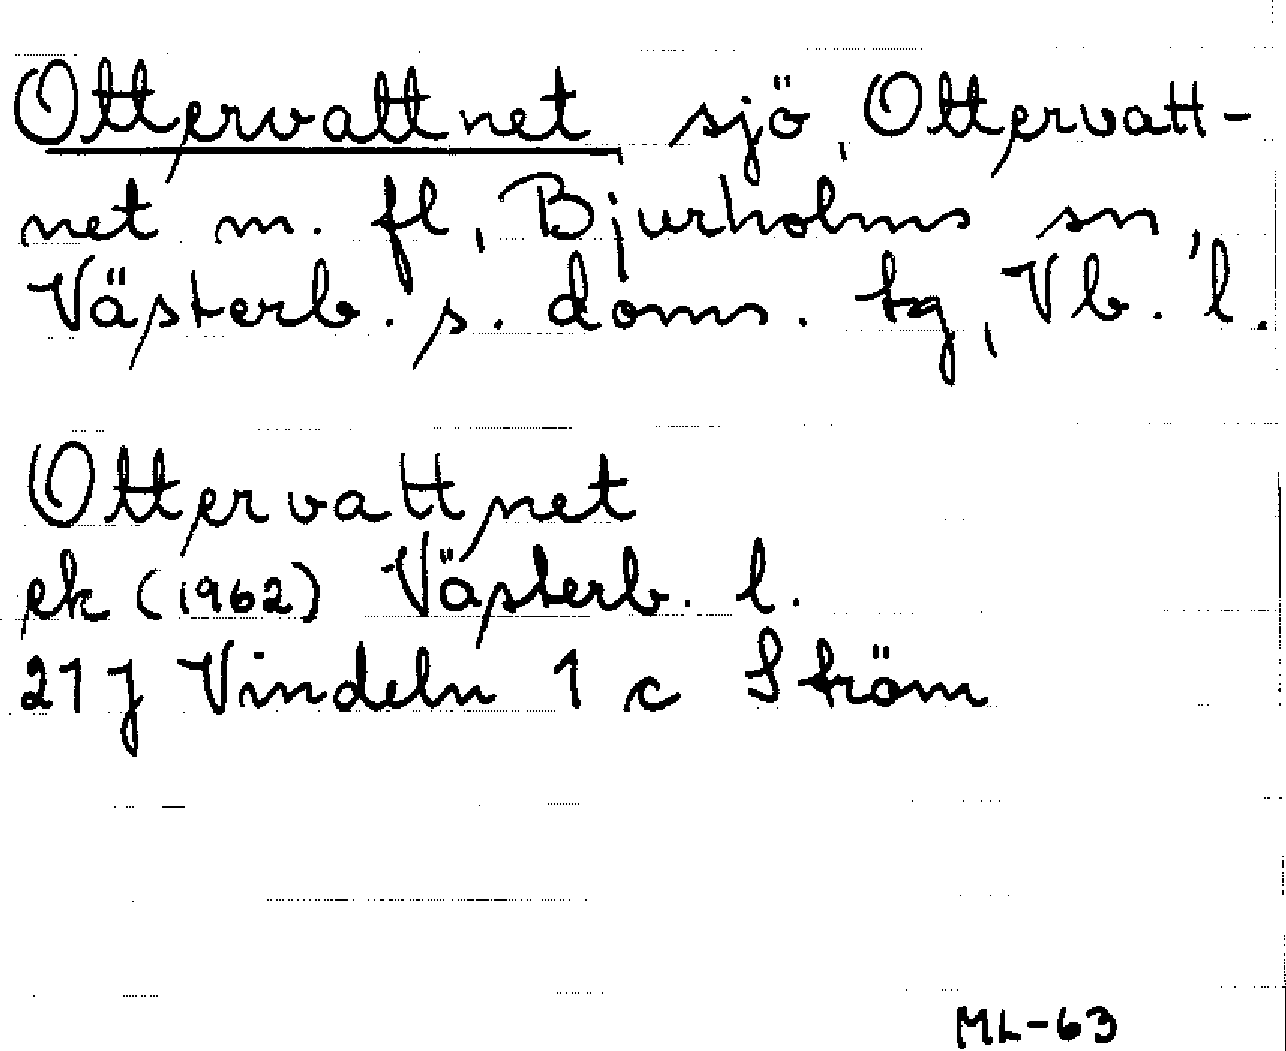 Ottervattnet sjö, Ottervatt-
net m. fl, Bjurholms sn,
Västerb. s. doms. tg, Vb. l.
Ottervattnet
ek (1962) Västerb. l.
21 J Vindeln 1 c Ström
ML-63